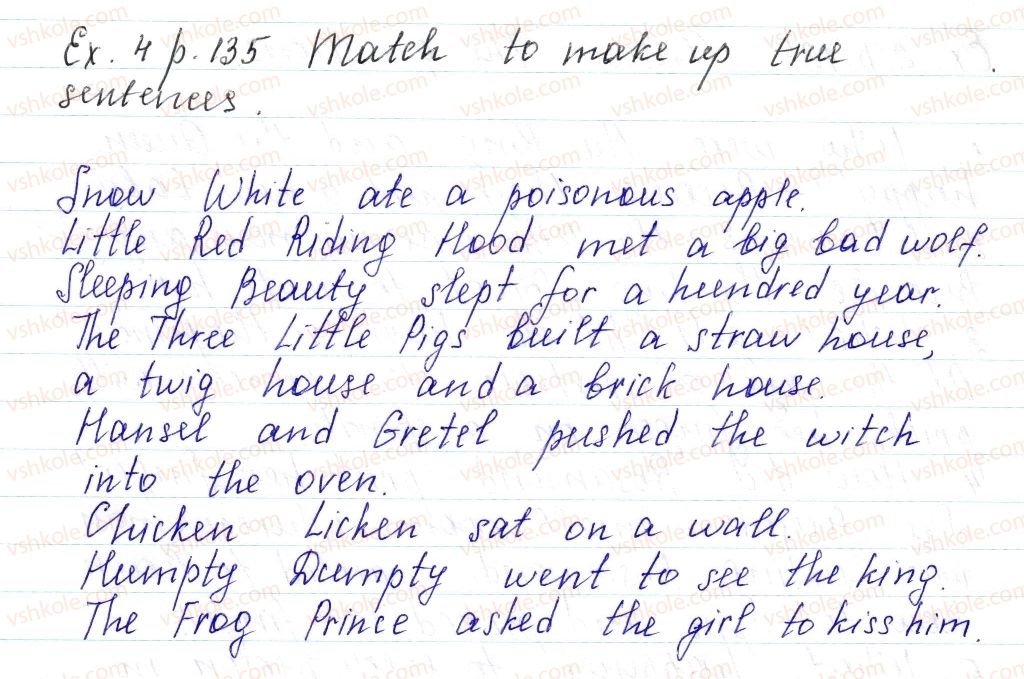 Ex. 4 p. 135 Match to make up true
sentences.
Snow White ate a poisonous apple.
Little Red Riding Hood met a big bad wolf.
Sleeping Beauty slept for a hundred year.
The Three Little Pigs built a straw house,
a twig house and a brick house.
Hansel and Gretel pushed the witch
into the oven.
Chicken Licken sat on a wall.
Humpty Dumpty went to see the king.
The Frog Prince asked the girl to kiss him.